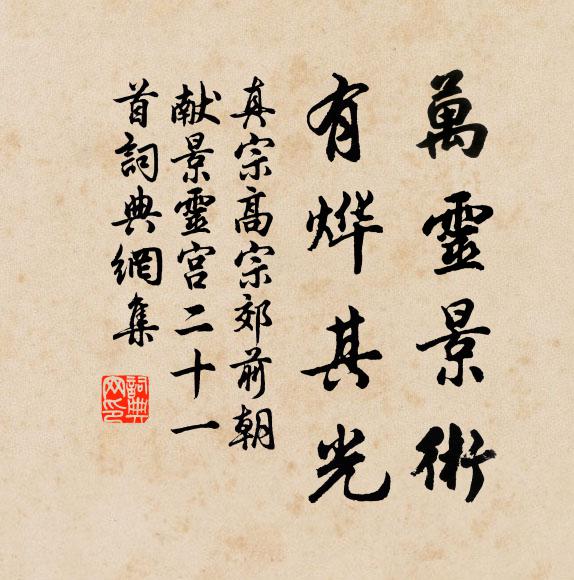 萬靈景術
有烨其光
真宗高宗郊前朝
献景靈宫二十一
首詞典網集
詞典網印